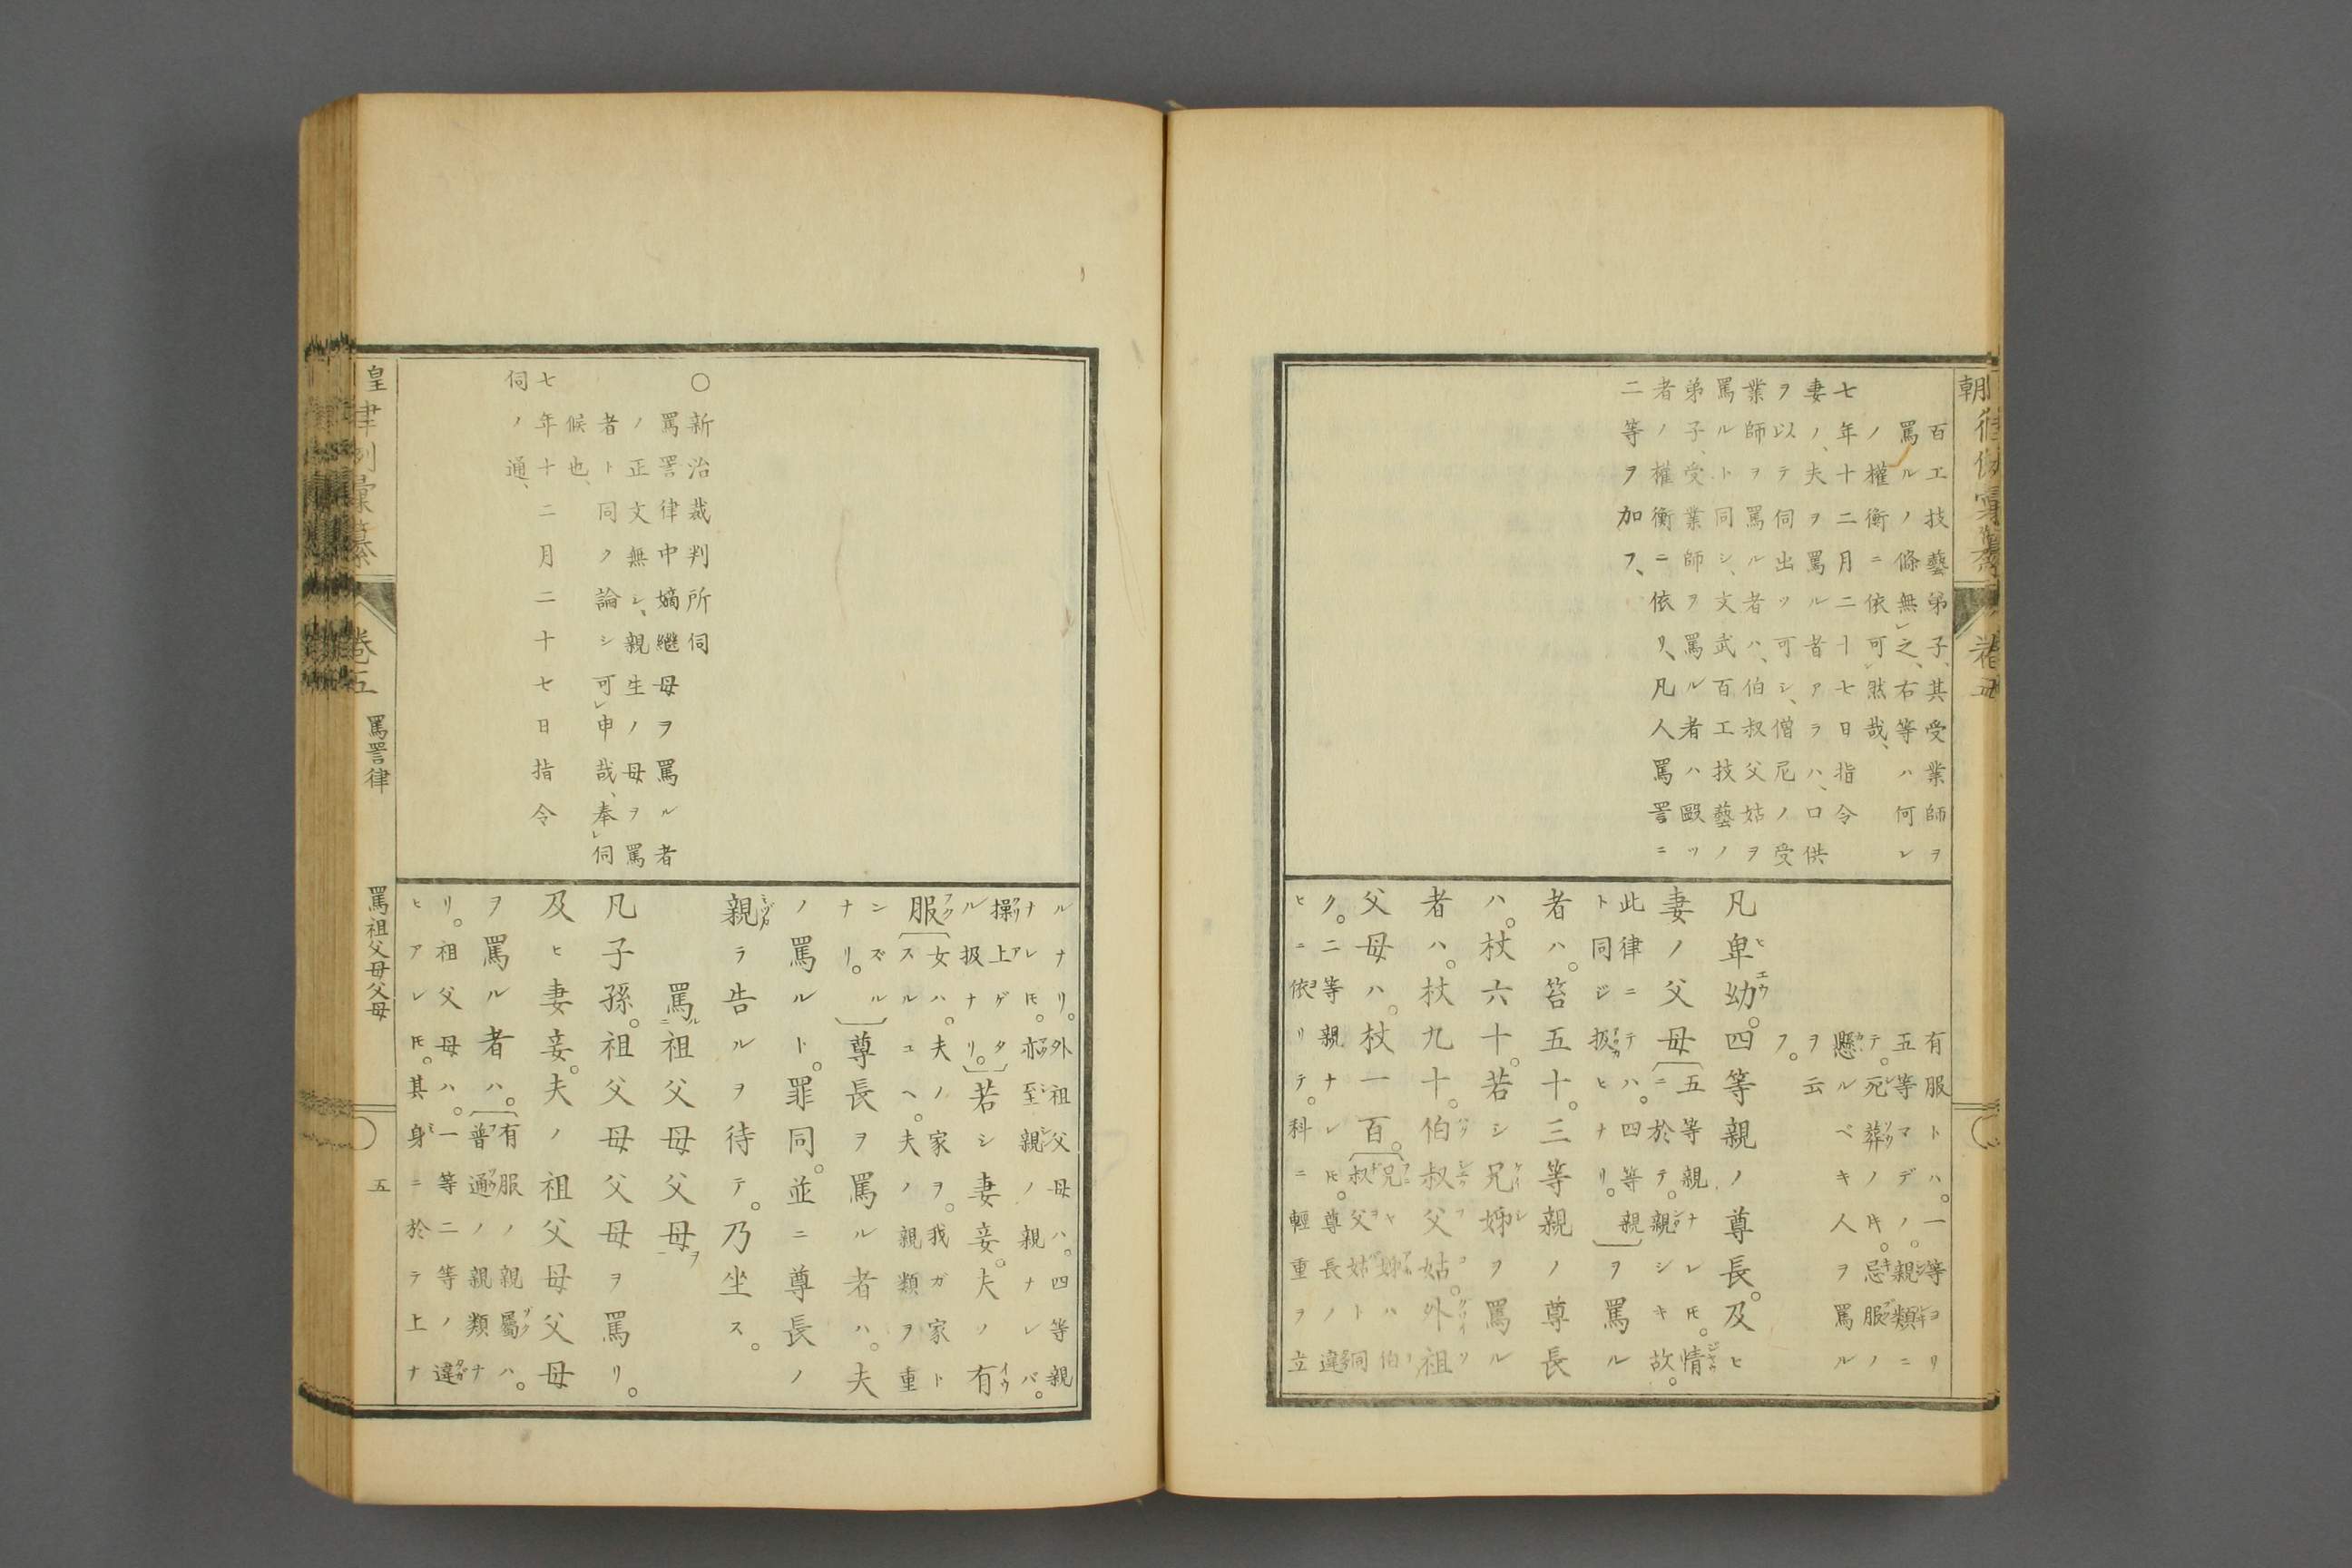 百工技藝弟子、其受業師ヲ
罵ルノ條無レ之、右等ハ何レ
ノ權衡ニ依可レ然哉、
七年十二月二十七日指令
妻ノ、夫ヲ罵ル者アラハ、口供
ヲ以テ伺出ツ可シ、僧尼ノ受
業師ヲ罵ル者ハ、伯叔父姑ヲ
罵ルト同シ、文武百工技藝ノ
弟子、受業師ヲ罵ル者ハ毆ツ
者ノ權衡ニ依リ、凡人罵詈ニ
二等ヲ加フ、
有服トハ。一等ヨリ
五等マデノ。親類ニ
テ。死葬ノ𪜈。忌服ノ
懸ルベキ人ヲ罵ル
ヲ云
フ。
凡卑幼。四等親ノ尊長。及ヒ
妻ノ父母〔五等親ナレ𪜈。情
ニ於テ。親シキ故。
此律ニテハ。四等親
ト同ジ扱ヒナリ。〕ヲ罵ル
者ハ。笞五十。三等親ノ尊長
ハ。杖六十。若シ兄姉ヲ罵ル
者ハ。杖九十。伯叔父姑。外祖
父母ハ。杖一百。〔兄ヤ姉ハ伯
叔父ヤ姑ト同
ク。二等親ナレ𪜈。尊長ノ違
ヒニ依リテ。科ニ輕重ヲ立
○新治裁判所伺
罵詈律中嫡繼母ヲ罵ル者
ノ正文無シ、親生ノ母ヲ罵
者ト同ク論シ可レ申哉、奉レ伺
候也、
七年十二月二十七日指令
伺ノ通、
ルナリ。外祖父母ハ。四等親
ナレ𪜈。亦至親ノ親ナレバ。
操上ゲタ
ル扱ナリ。〕若シ妻妾。夫ノ有
服〔女ハ。夫ノ家ヲ。我ガ家ト
スルユヘ。夫ノ親類ヲ重
ンズル
ナリ。〕尊長ヲ罵ル者ハ。夫
ノ罵ルト。罪同。並ニ尊長ノ
親ラ告ルヲ待テ。乃坐ス。
罵祖父母父母
凡子孫。祖父母父母ヲ罵リ。
及ヒ妻妾。夫ノ祖父母父母
ヲ罵ル者ハ。〔有服ノ親屬ハ。
普通ノ親類ナ
リ。祖父母ハ。一等二等ノ違
ヒアレ𪜈。其身ニ於テ上ナ
皇律例彙纂 卷五 罵詈律 罵祖父母父母 五